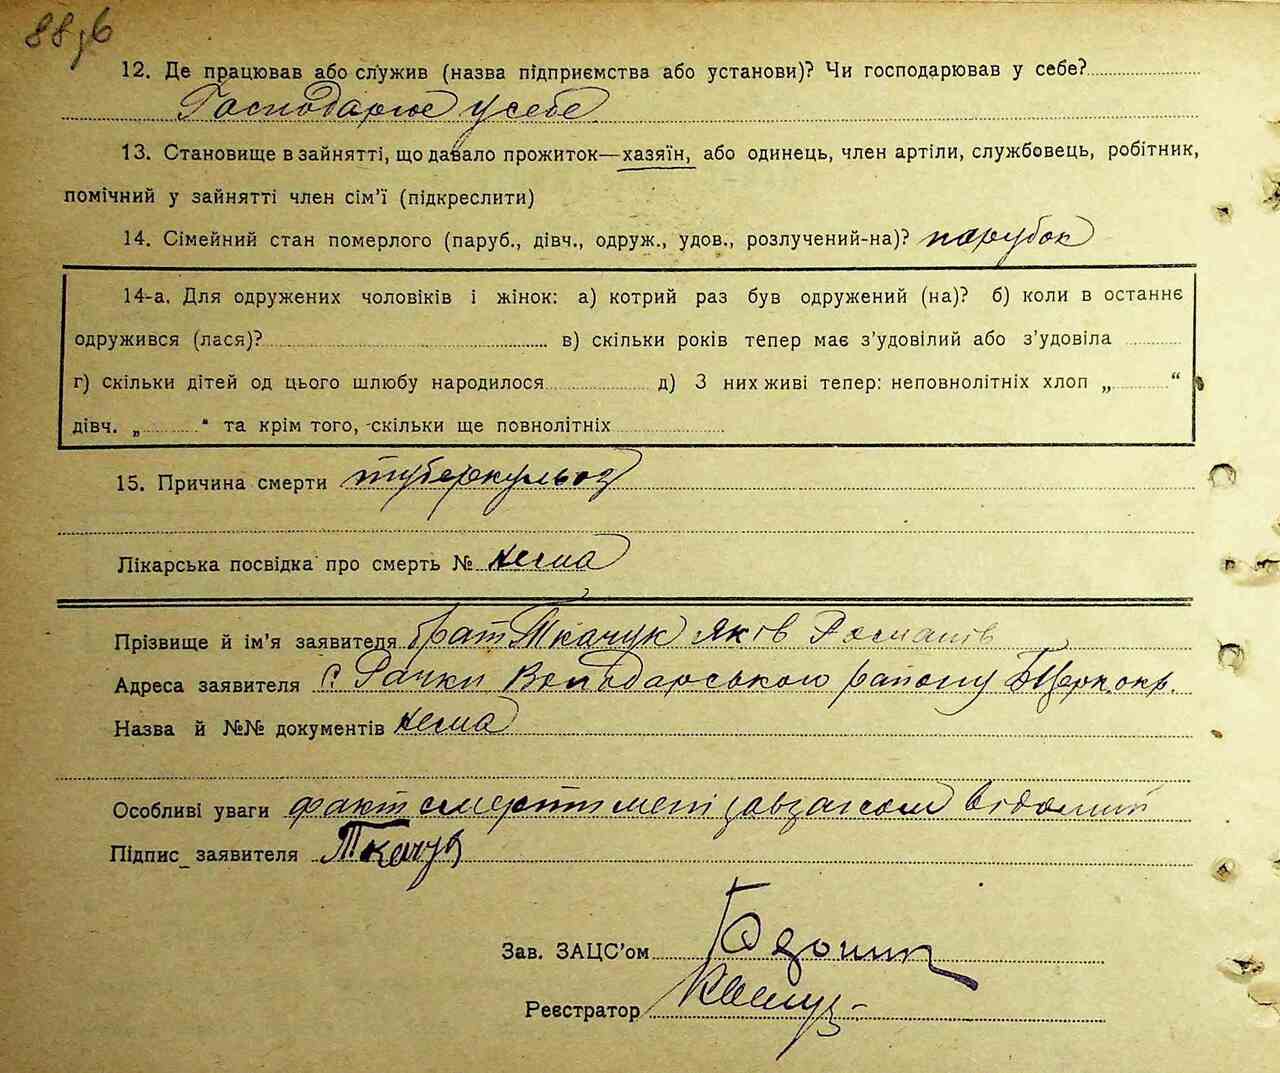 88 зв
12. Де працював або служив (назва підприємства або установи)? Чи господарював у себе?
Господарює у себе
13. Становище в зайнятті, що давало прожиток—хазяїн, або одинець, член артіли, службовець, робітник,
помічний у зайнятті член сім'ї (підкреслити)
14. Сімейний стан померлого (паруб., дівч., одруж., удов., розлучений-на)? парубок
14-а. Для одружених чоловіків і жінок: а) котрий раз був одружений (на)? б) коли в останнє
одружився (лася)? в) скільки років тепер має з'удовілий або з'удовіла
г) скільки дітей од цього шлюбу народилося д) З них живі тепер: неповнолітніх хлоп „ “
дівч. „ “ та крім того, скільки ще повнолітніх
15. Причина смерти туберкульоз
Лікарська посвідка про смерть № нема
Прізвище й ім'я заявителя брат Ткачук Яків Романів
Адреса заявителя с Рачки Володарського району БЦерк. окр.
Назва й №№ документів нема
Особливі уваги факт смерти мені завзагсом відомий
Підпис заявителя Ткачук
Зав. ЗАЦС'ом
Реєстратор